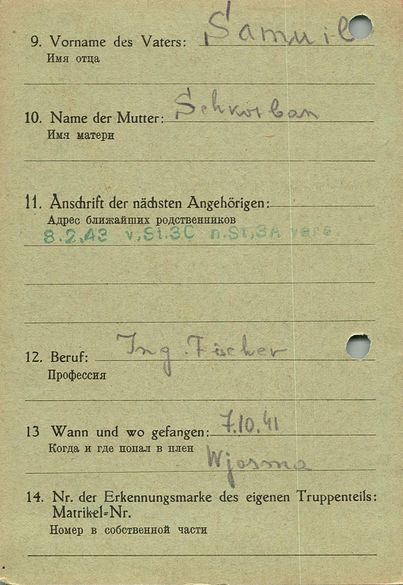 9. Vorname des Vaters: Samuil
Имя отца
10. Name der Mutter: Schkorban
Имя матери
11. Anschrift der nächsten Angehörigen:
Адрес ближайших родственников
8.2.43 v. St. 3C n. St. 3A vers.
12. Beruf: Ing. Fischer
Профессия
13 Wann und wo gefangen: 7.10.41
Когда и где попал в плен
Wjosma
14. Nr. der Erkennungsmarke des eigenen Truppenteils:
Matrikel-Nr.
Номер в собственной части